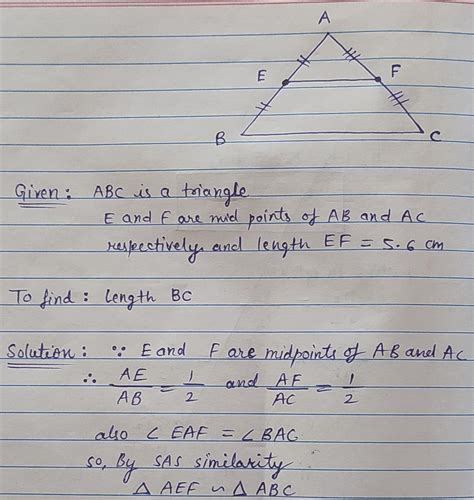 A
E F
B C
Given : ABC is a triangle
E and F are mid points of AB and AC
respectively, and length EF = 5.6 cm
To find : length BC
Solution : ∵ E and F are midpoints of AB and AC
∴ AE/AB = 1/2 and AF/AC = 1/2
also ∠ EAF = ∠ BAC
so, By SAS similarity
△ AEF ∽ △ ABC